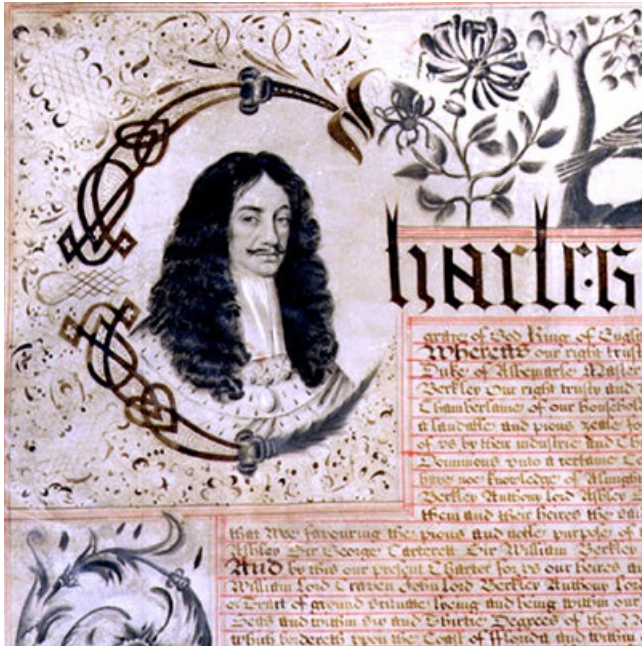 Charles
grace of God King of Engla
Whereas our right trust
Duke of Albemarle Master
Berkley Our right trusty and
Chamberlaine of our househol
a laudable and pious zeale fo
of vs by their industrie and Ch
Dominions vnto a certaine C
have noe knowledge of Almigh
Berkley Anthony lord Ashley
them and their heires the sai
that Wee favouring the pious and noble purpose of
Ashley Sir George Carterett Sir William Berkley
And by this our present Charter for vs our heires an
William Lord Craven John Lord Berkley Anthony Lor
or Tract of ground scituate lyeing and being within our
Seas and within six and Thirtie Degrees of the No
which bordereth vpon the Coast of Florida and within